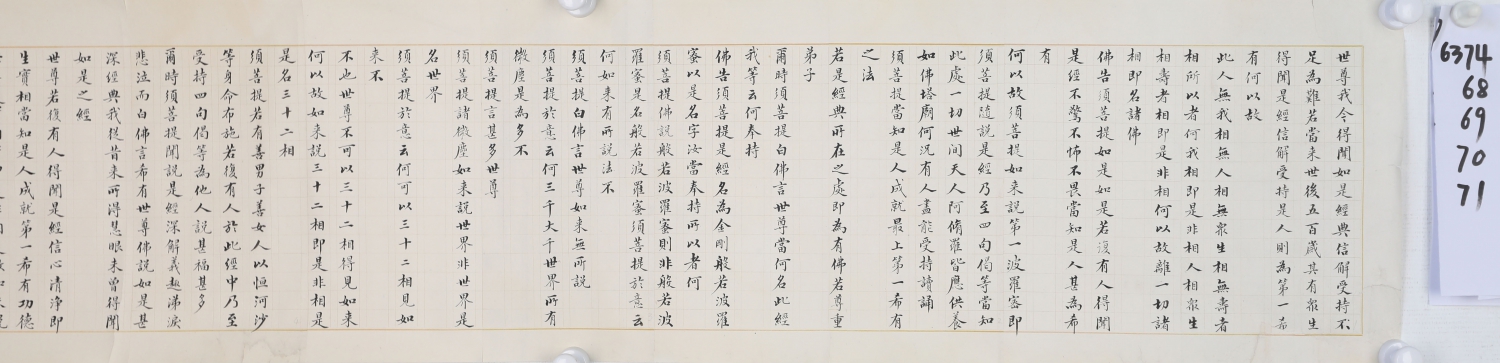 世尊我今得聞如是經典信解受持不
足為難若當来世後五百歲其有眾生
得聞是經信解受持是人則為第一希
有何以故
此人無我相無人相無眾生相無壽者
相所以者何我相即是非相人相眾生
相壽者相即是非相何以故離一切諸
相即名諸佛
佛告須菩提如是如是若復有人得聞
是經不驚不怖不畏當知是人甚為希
有
何以故須菩提如来說第一波羅蜜即
須菩提隨說是經乃至四句偈等當知
此處一切世间天人阿脩羅皆應供養
如佛塔廟何況有人盡能受持讀誦
須菩提當知是人成就最上第一希有
之法
若是經典所在之處即為有佛若尊重
弟子
爾時須菩提白佛言世尊當何名此經
我等云何奉持
佛告須菩提是經名為金剛般若波羅
蜜以是名字汝當奉持所以者何
須菩提佛說般若波羅蜜則非般若波
羅蜜是名般若波羅蜜須菩提於意云
何如来有所說法不
須菩提白佛言世尊如来無所說
須菩提於意云何三千大千世界所有
微塵是為多不
須菩提言甚多世尊
須菩提諸微塵如来說世界非世界是
名世界
須菩提於意云何可以三十二相見如
来不
不也世尊不可以三十二相得見如来
何以故如来說三十二相即是非相是
是名三十二相
須菩提若有善男子善女人以恒河沙
等身命布施若復有人於此經中乃至
受持四句偈等為他人說甚福甚多
爾時須菩提聞說是經深解義趣涕淚
悲泣而白佛言希有世尊佛說如是甚
深經典我從昔来所得慧眼未曾得聞
如是之經
世尊若復有人得聞是經信心清淨即
生實相當知是人成就第一希有功德
6374
68
69
70
71